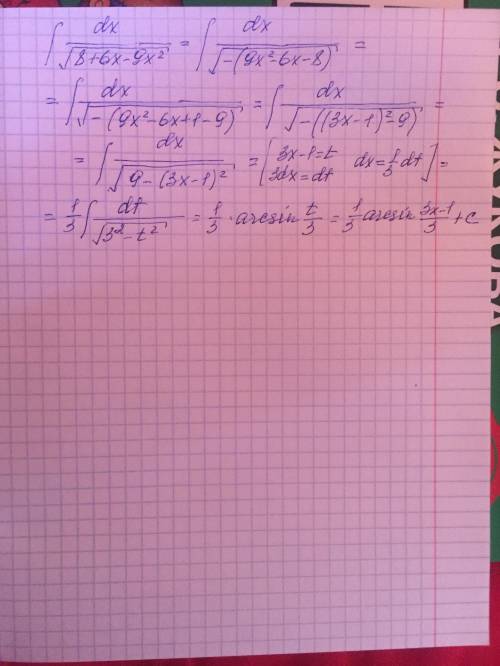 ∫ dx/√(8+6x-9x²) = ∫ dx/√(-(9x²-6x-8)) =
= ∫ dx/√(-(9x²-6x+1-9)) = ∫ dx/√(-((3x-1)²-9)) =
= ∫ dx/√(9-(3x-1)²) = [3x-1=t dx=1/3 dt
3dx=dt] =
= 1/3 ∫ dt/√(3²-t²) = 1/3 · arcsin t/3 = 1/3 arcsin (3x-1)/3 + c